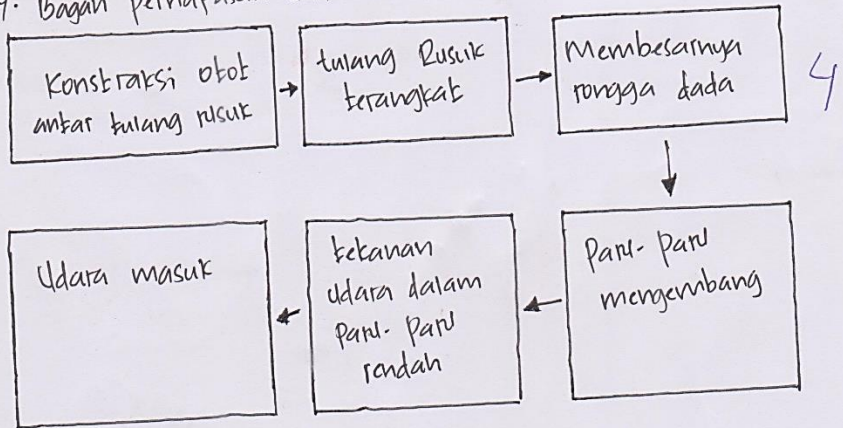 Bagan
Konstraksi otot
antar tulang rusuk
tulang Rusuk
terangkat
Membesarnya
rongga dada
4
Paru-Paru
mengembang
tekanan
udara dalam
Paru-Paru
rendah
Udara masuk